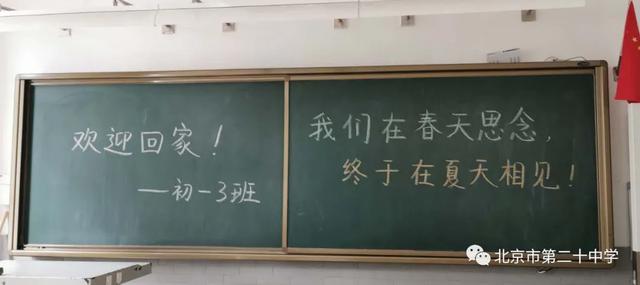 欢迎回家！
——初一3班
我们在春天思念，
终于在夏天相见！
北京市第二十中学